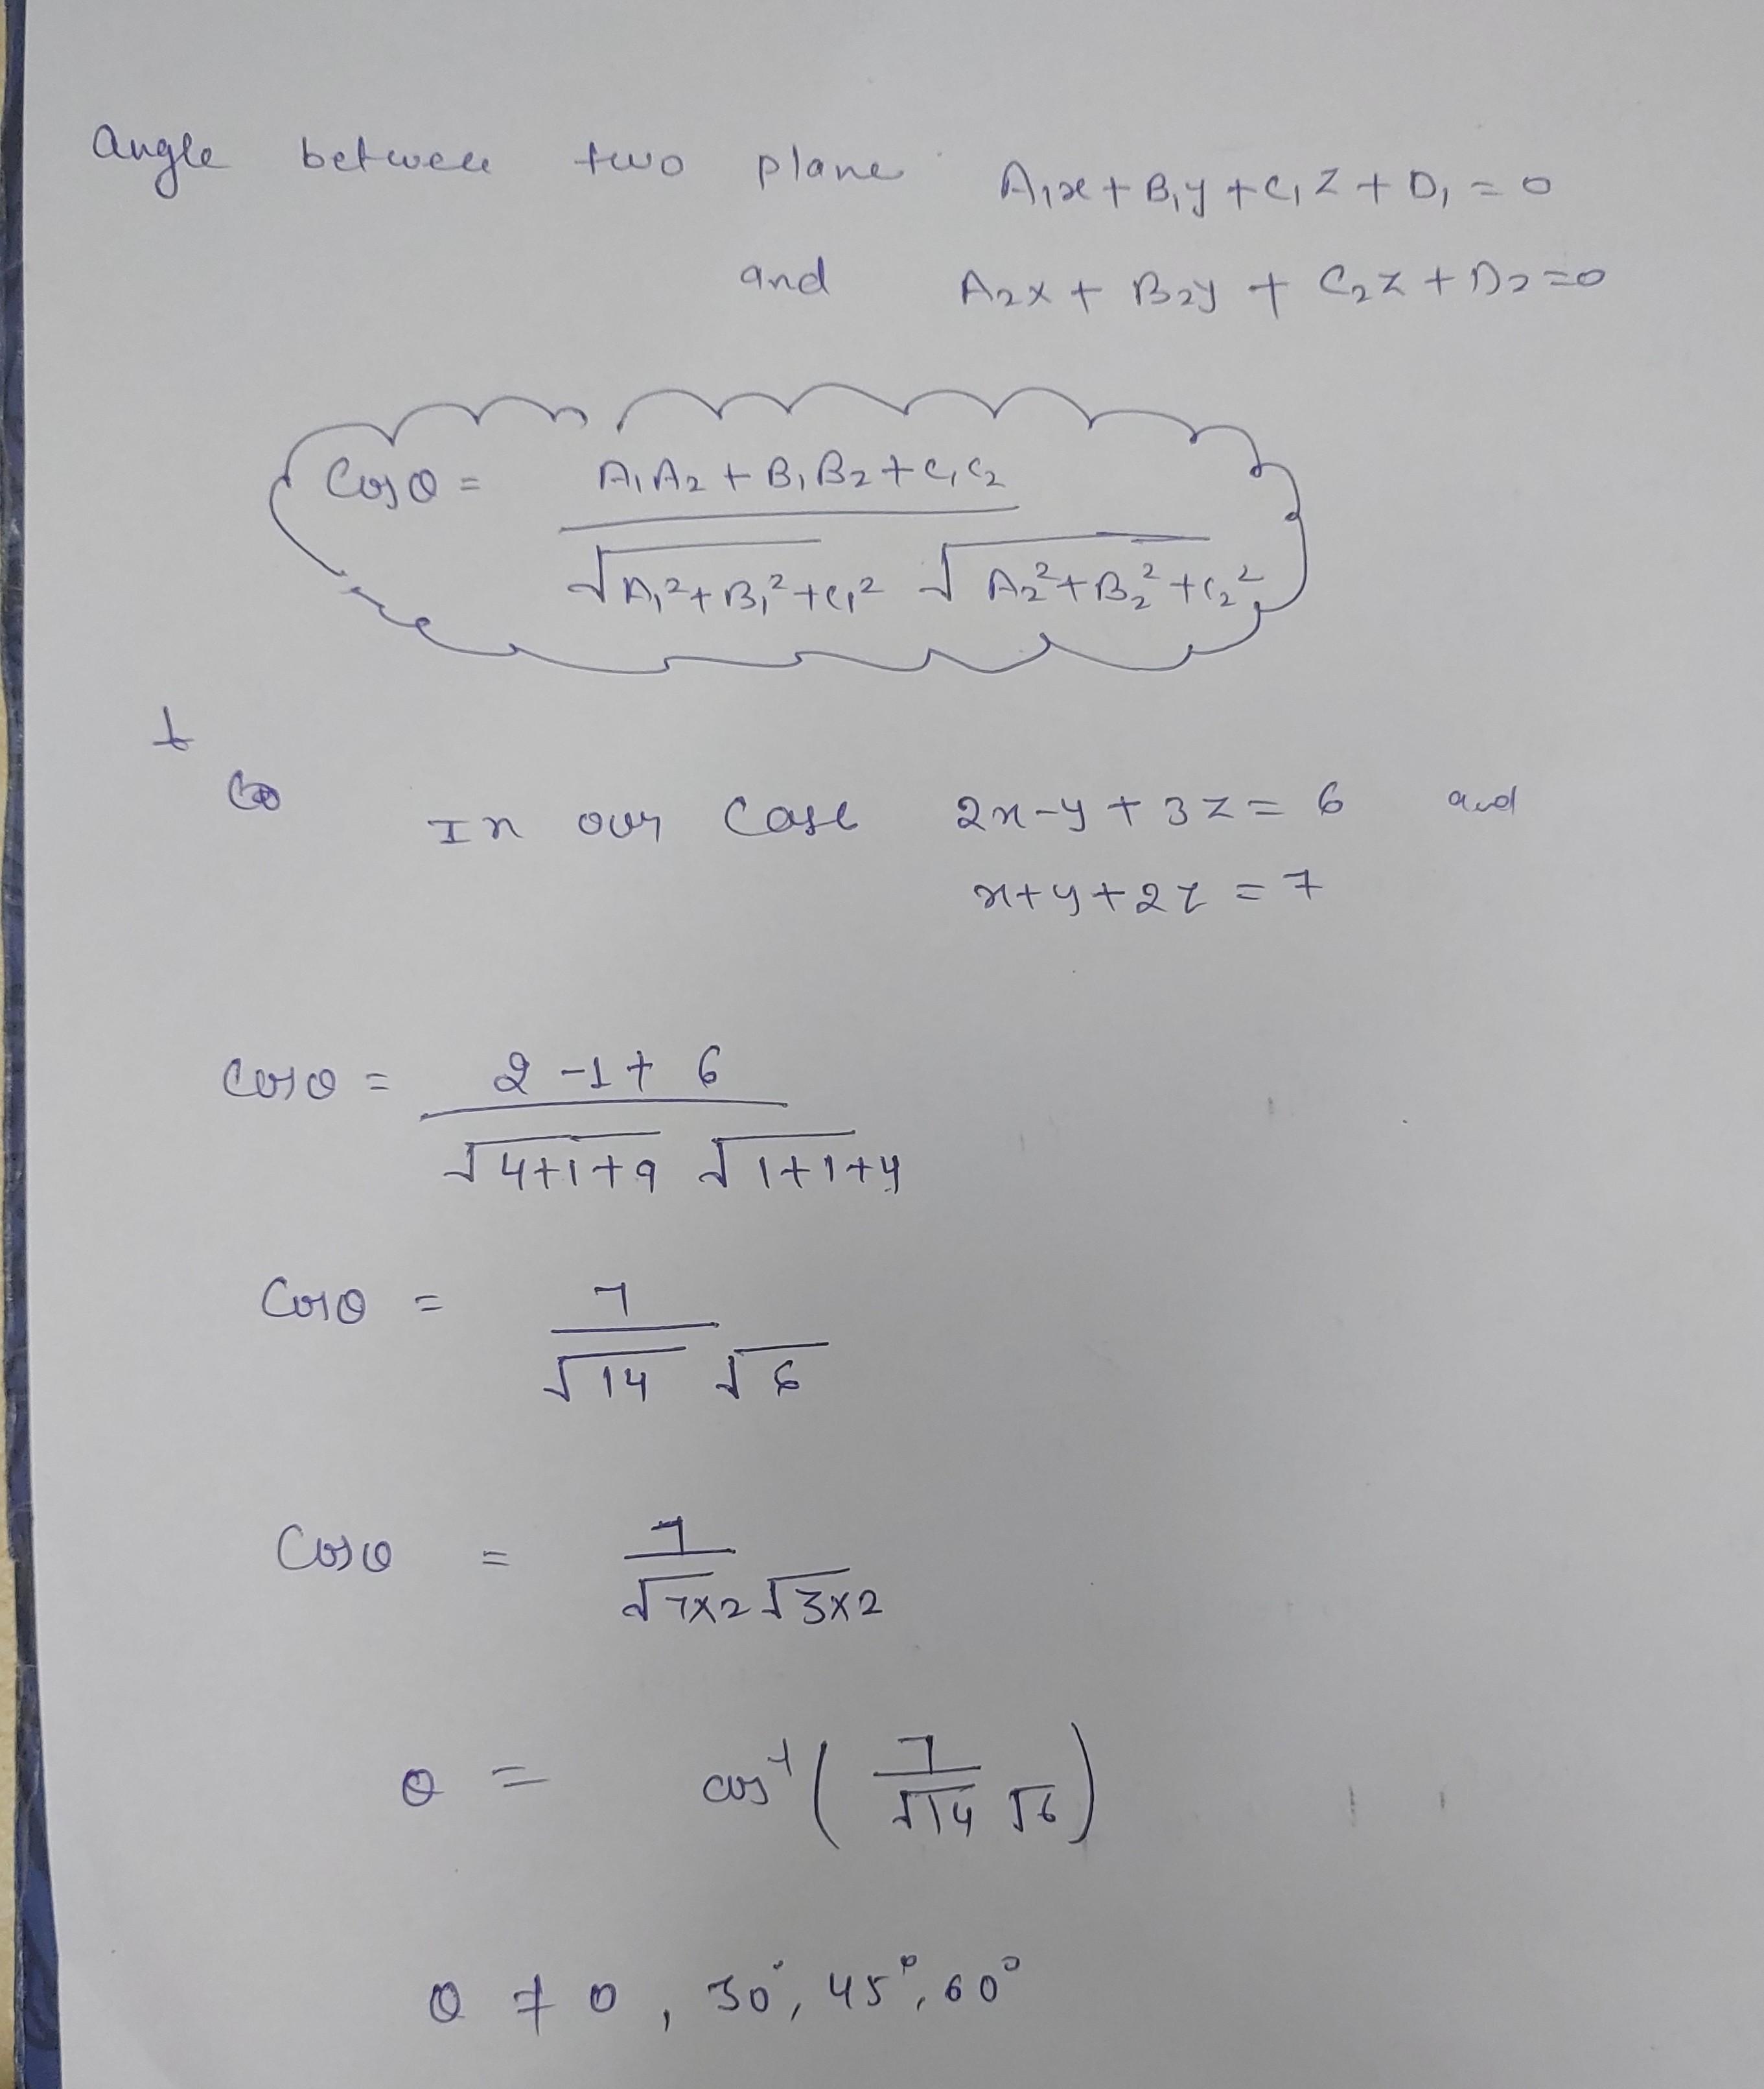 Angle between two plane A₁x + B₁y + C₁Z + D₁ = 0
and A₂x + B₂y + C₂Z + D₂ = 0
Cosθ = A₁A₂ + B₁B₂ + C₁C₂ / √A₁² + B₁² + C₁² √A₂² + B₂² + C₂²
In our Case 2x - y + 3z = 6 and
x + y + 2z = 7
Cosθ = 2 - 1 + 6 / √4+1+9 √1+1+4
Cosθ = 7 / √14 √6
Cosθ = 7 / √7×2 √3×2
θ = cos⁻¹ ( 7 / √14 √6 )
θ ≠ 0, 30°, 45°, 60°